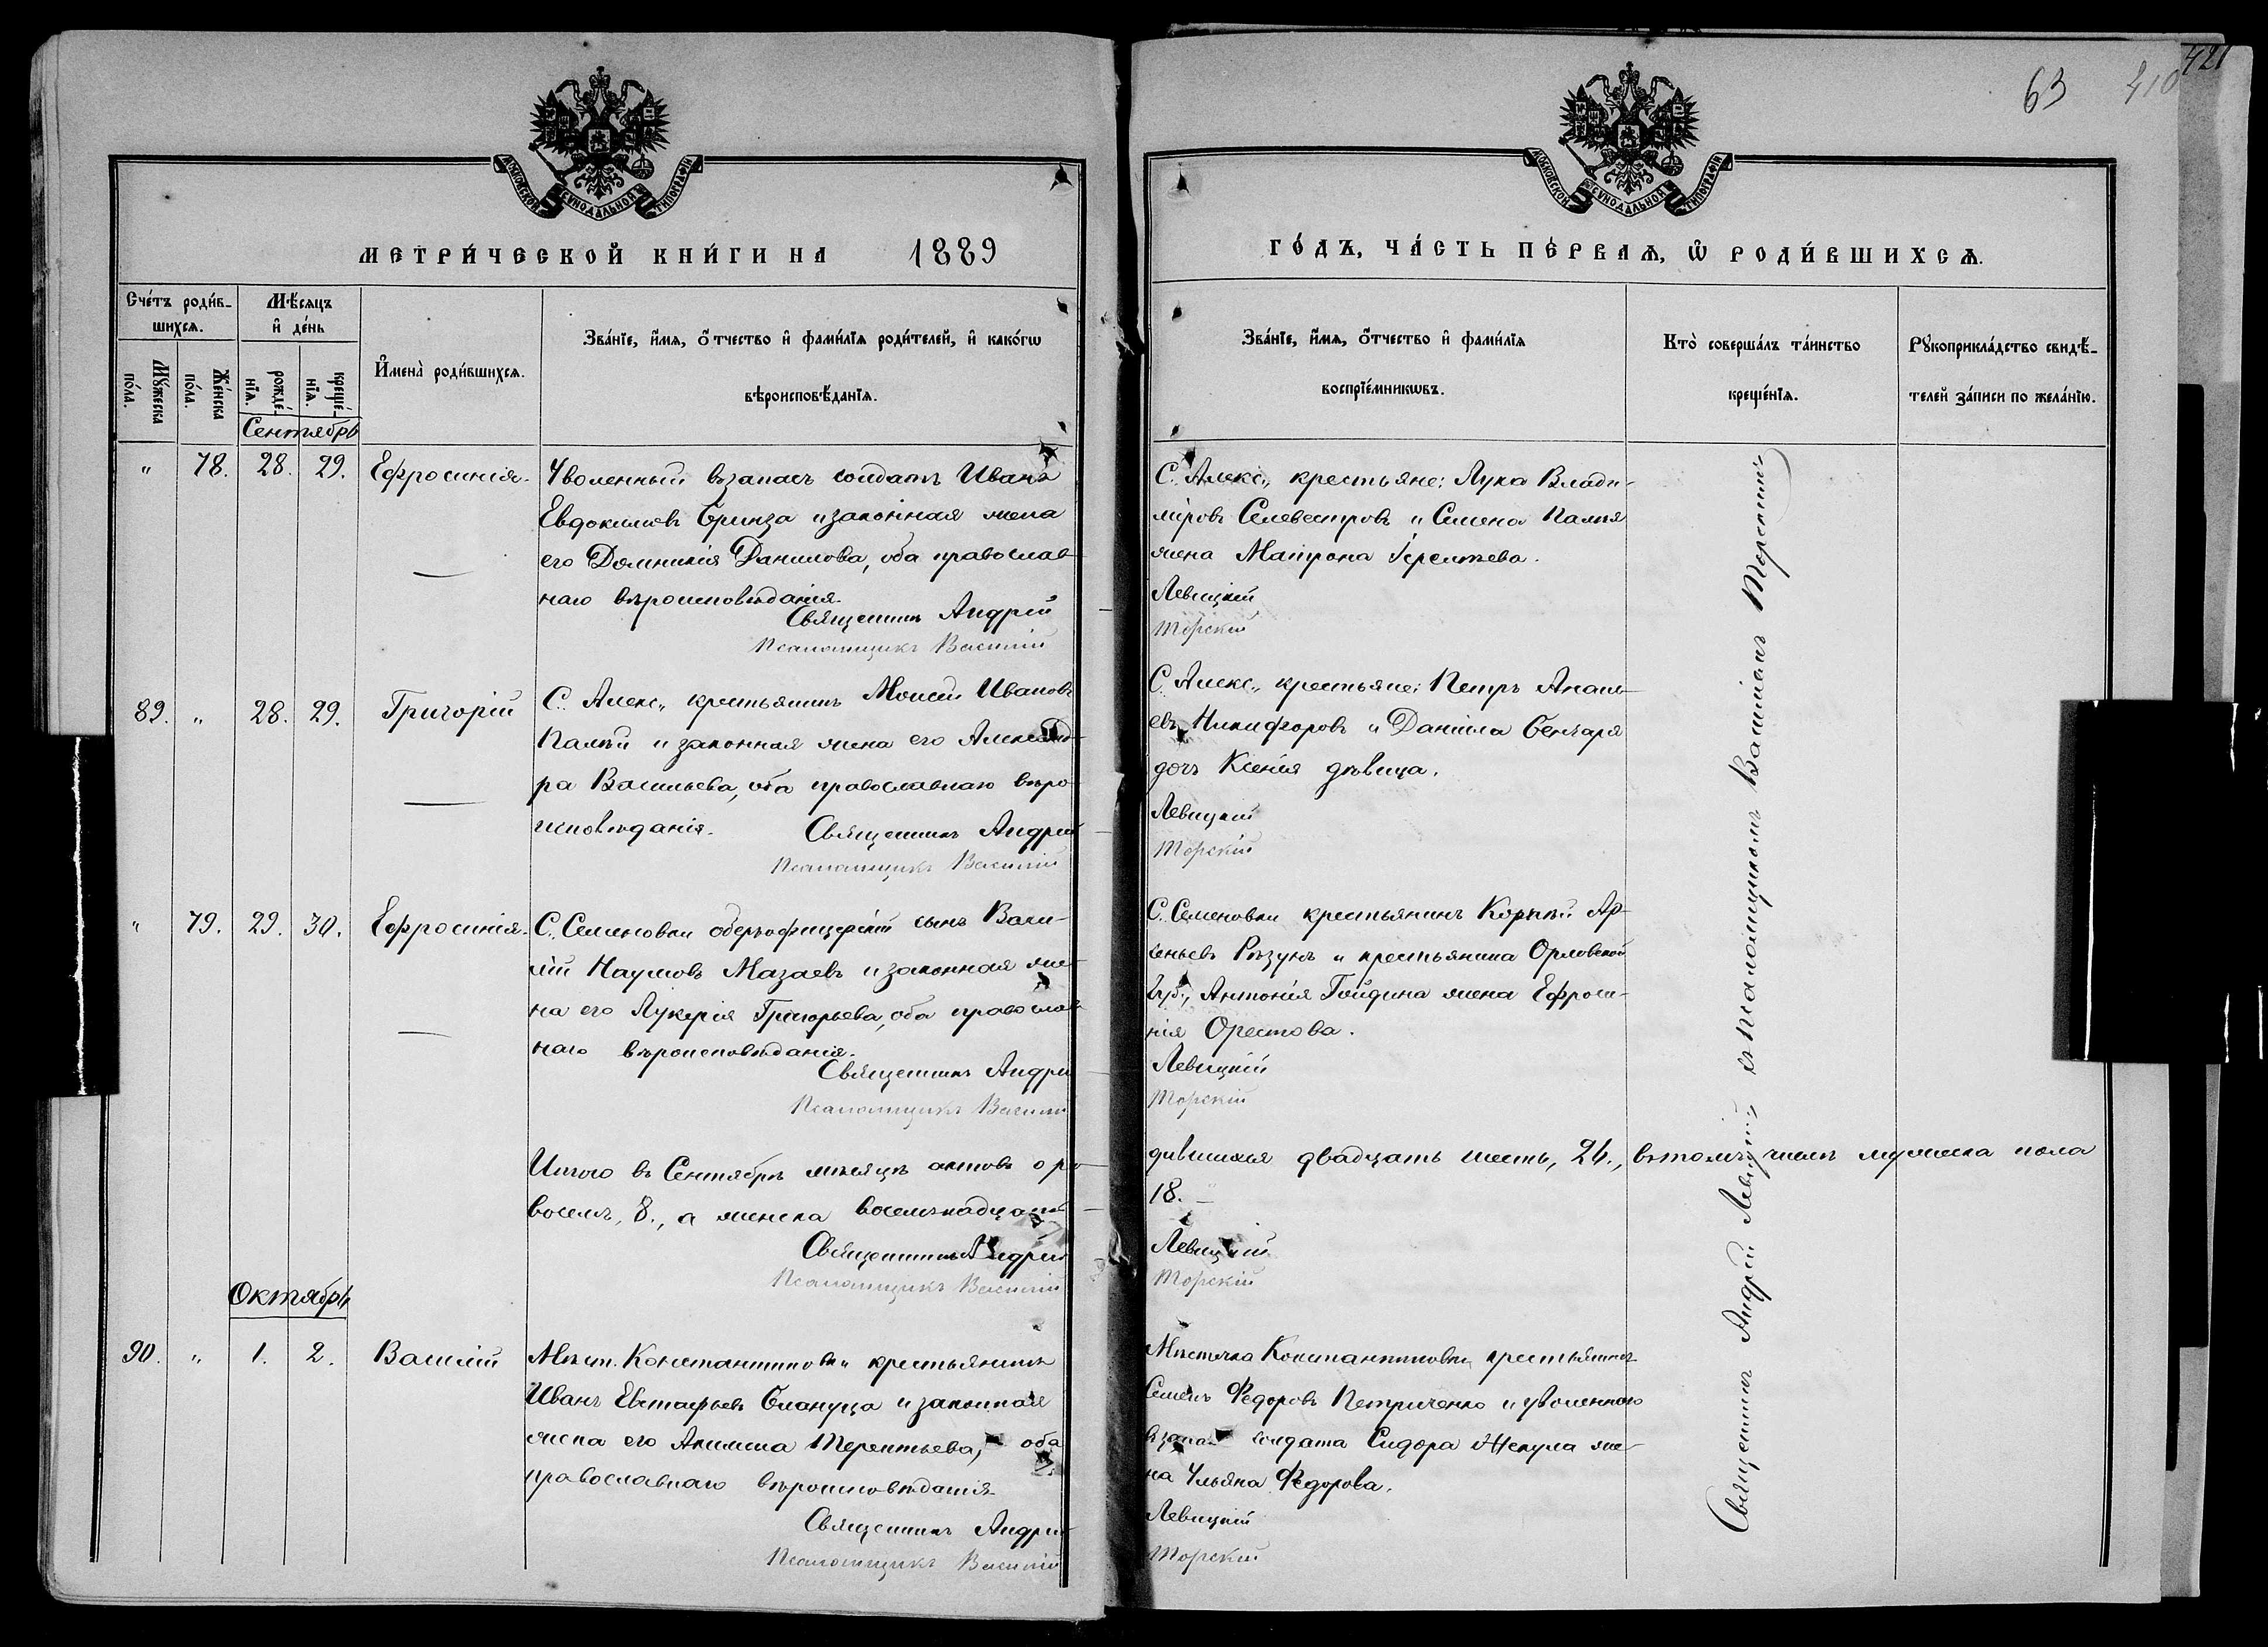 63
410
421
МОСКОВСКОЙ СѴНОДАЛЬНОЙ ТИПОГРАФІИ
МОСКОВСКОЙ СѴНОДАЛЬНОЙ ТИПОГРАФІИ
МЕТРИ́ЧЕСКОЙ КНИ́ГИ НА 1889
ГО́ДЪ, ЧА́СТЬ ПЕ́РВАѦ, Ѡ РОДИ́ВШИХСѦ.
Сче́тъ роди́в-
шихсѧ.
Мꙋ́жеска по́ла.
Же́нска по́ла.
Мѣ́сяцъ
и҆ де́нь
рожде́-
нїѧ.
креще́-
нїѧ.
И҆мена̀ роди́вшихсѧ.
Зва́нїе, и҆́мѧ, ѻ҆́тчество и҆ фами́лїѧ роди́телей, и҆ како́гѡ
вѣроисповѣ́данїѧ.
Зва́нїе, и҆́мѧ, ѻ҆́тчество и҆ фами́лїѧ
воспрїе́мникѡвъ.
Кто̀ соверша́лъ та́инство
креще́нїѧ.
Рꙋкоприкла́дство свидѣ́-
телей за́писи по жела́нїю.
Сентябрь
" 78. 28. 29. Ефросинія.
Уволенный въ запасъ солдатъ Иванъ
Евдокимовъ Бринза и законная жена
его Домникія Данилова, оба православ-
наго вѣроисповѣданія.
Священникъ Андрей
Псаломщикъ Василій
С. Алекс., крестьяне: Лука Влади-
міровъ Селевестровъ и Семена Палѣя
жена Матрона Терентева.
Левицкій
Торскій
89. " 28. 29. Григорій
С. Алекс., крестьянинъ Моисей Ивановъ
Палѣй и законная жена его Александ-
ра Васильева, оба православнаго вѣро-
исповѣданія.
Священникъ Андрей
Псаломщикъ Василій
С. Алекс., крестьяне: Петръ Анань-
евъ Никифоровъ и Даніила Бенчаря
дочь Ксенія дѣвица.
Левицкій
Торскій
" 79. 29. 30. Ефросинія.
С. Семеновки оберъофицерскій сынъ Васи-
лій Наумовъ Мазаевъ и законная же-
на его Лукерія Григорьева, оба православ-
наго вѣроисповѣданія.
Священникъ Андрей
Псаломщикъ Василій
С. Семеновки крестьянинъ Корнѣй Ар-
сеньевъ Рѣзунъ и крестьянина Орловской
губ., Антонія Гойдина жена Ефроси-
нія Орестова.
Левицкій
Торскій
Итого въ Сентябрѣ мѣсяцѣ актовъ о ро-
дившихся двадцать шесть, 26., въ томъ числѣ мужеска пола
восемь, 8., а женска восемьнадцать
18. –
Священникъ Андрей
Псаломщикъ Василій
Левицкій
Торскій
Октябрь
90. " 1. 2. Василій
Мѣст. Константиновки крестьянинъ
Иванъ Евстафьевъ Блануца и законная
жена его Акилина Терентьева, оба
православнаго вѣроисповѣданія
Священникъ Андрей
Псаломщикъ Василій
Мѣстечка Константиновки крестьянинъ
Семенъ Федоровъ Петриченко и уволеннаго
въ запасъ солдата Сидора Жекула же-
на Ульяна Федорова.
Левицкій
Торскій
Священникъ Андрей Левицкій съ псаломщикомъ Василіемъ Торскимъ